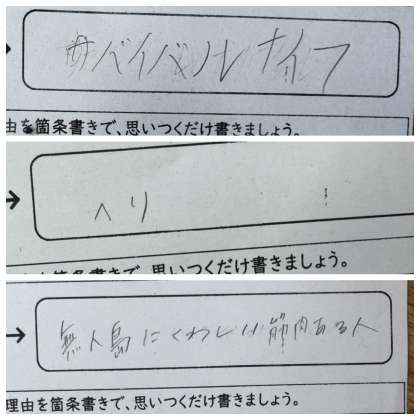 サバイバルナイフ
由を箇条書きで、思いつくだけ書きましょう。
ヘリ !
箇条書きで、思いつくだけ書きましょう。
無人島にくわしい筋肉ある人
理由を箇条書きで、思いつくだけ書きましょう。